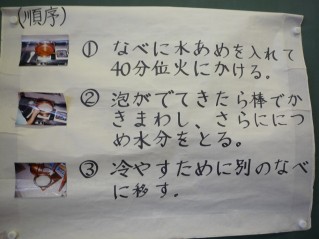 (順序)
① なべに水あめを入れて
40分位火にかける。
② 泡がでてきたら棒でか
きまわし、さらにに つ
め水分をとる。
③ 冷やすために別のなべ
に移す。